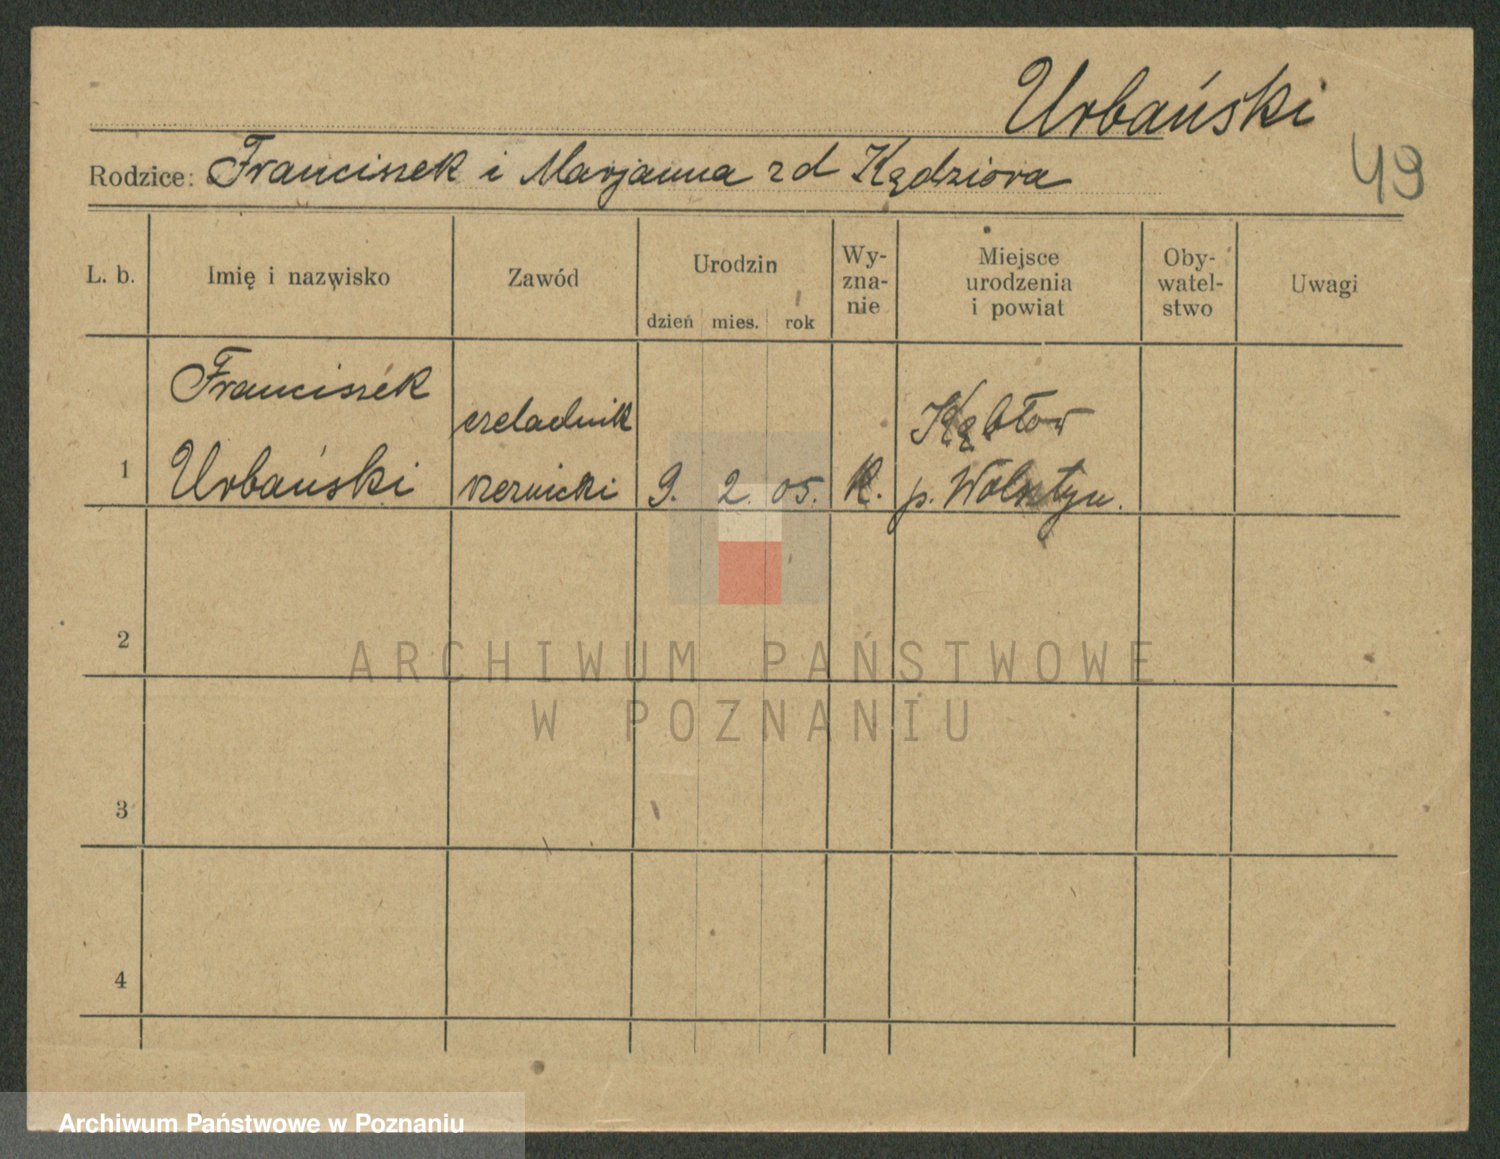 Urbański
49
Rodzice: Franciszek i Marjanna z d Kądziora
L. b.
Imię i nazwisko
Zawód
Urodzin
dzień mies. rok
Wy-
zna-
nie
Miejsce
urodzenia
i powiat
Oby-
watel-
stwo
Uwagi
1
Franciszek
Urbański
czeladnik
rzeźnicki
9. 2. 05.
K.
Kębłow
p. Wolsztyn.
2
3
4
ARCHIWUM PAŃSTWOWE
W POZNANIU
Archiwum Państwowe w Poznaniu